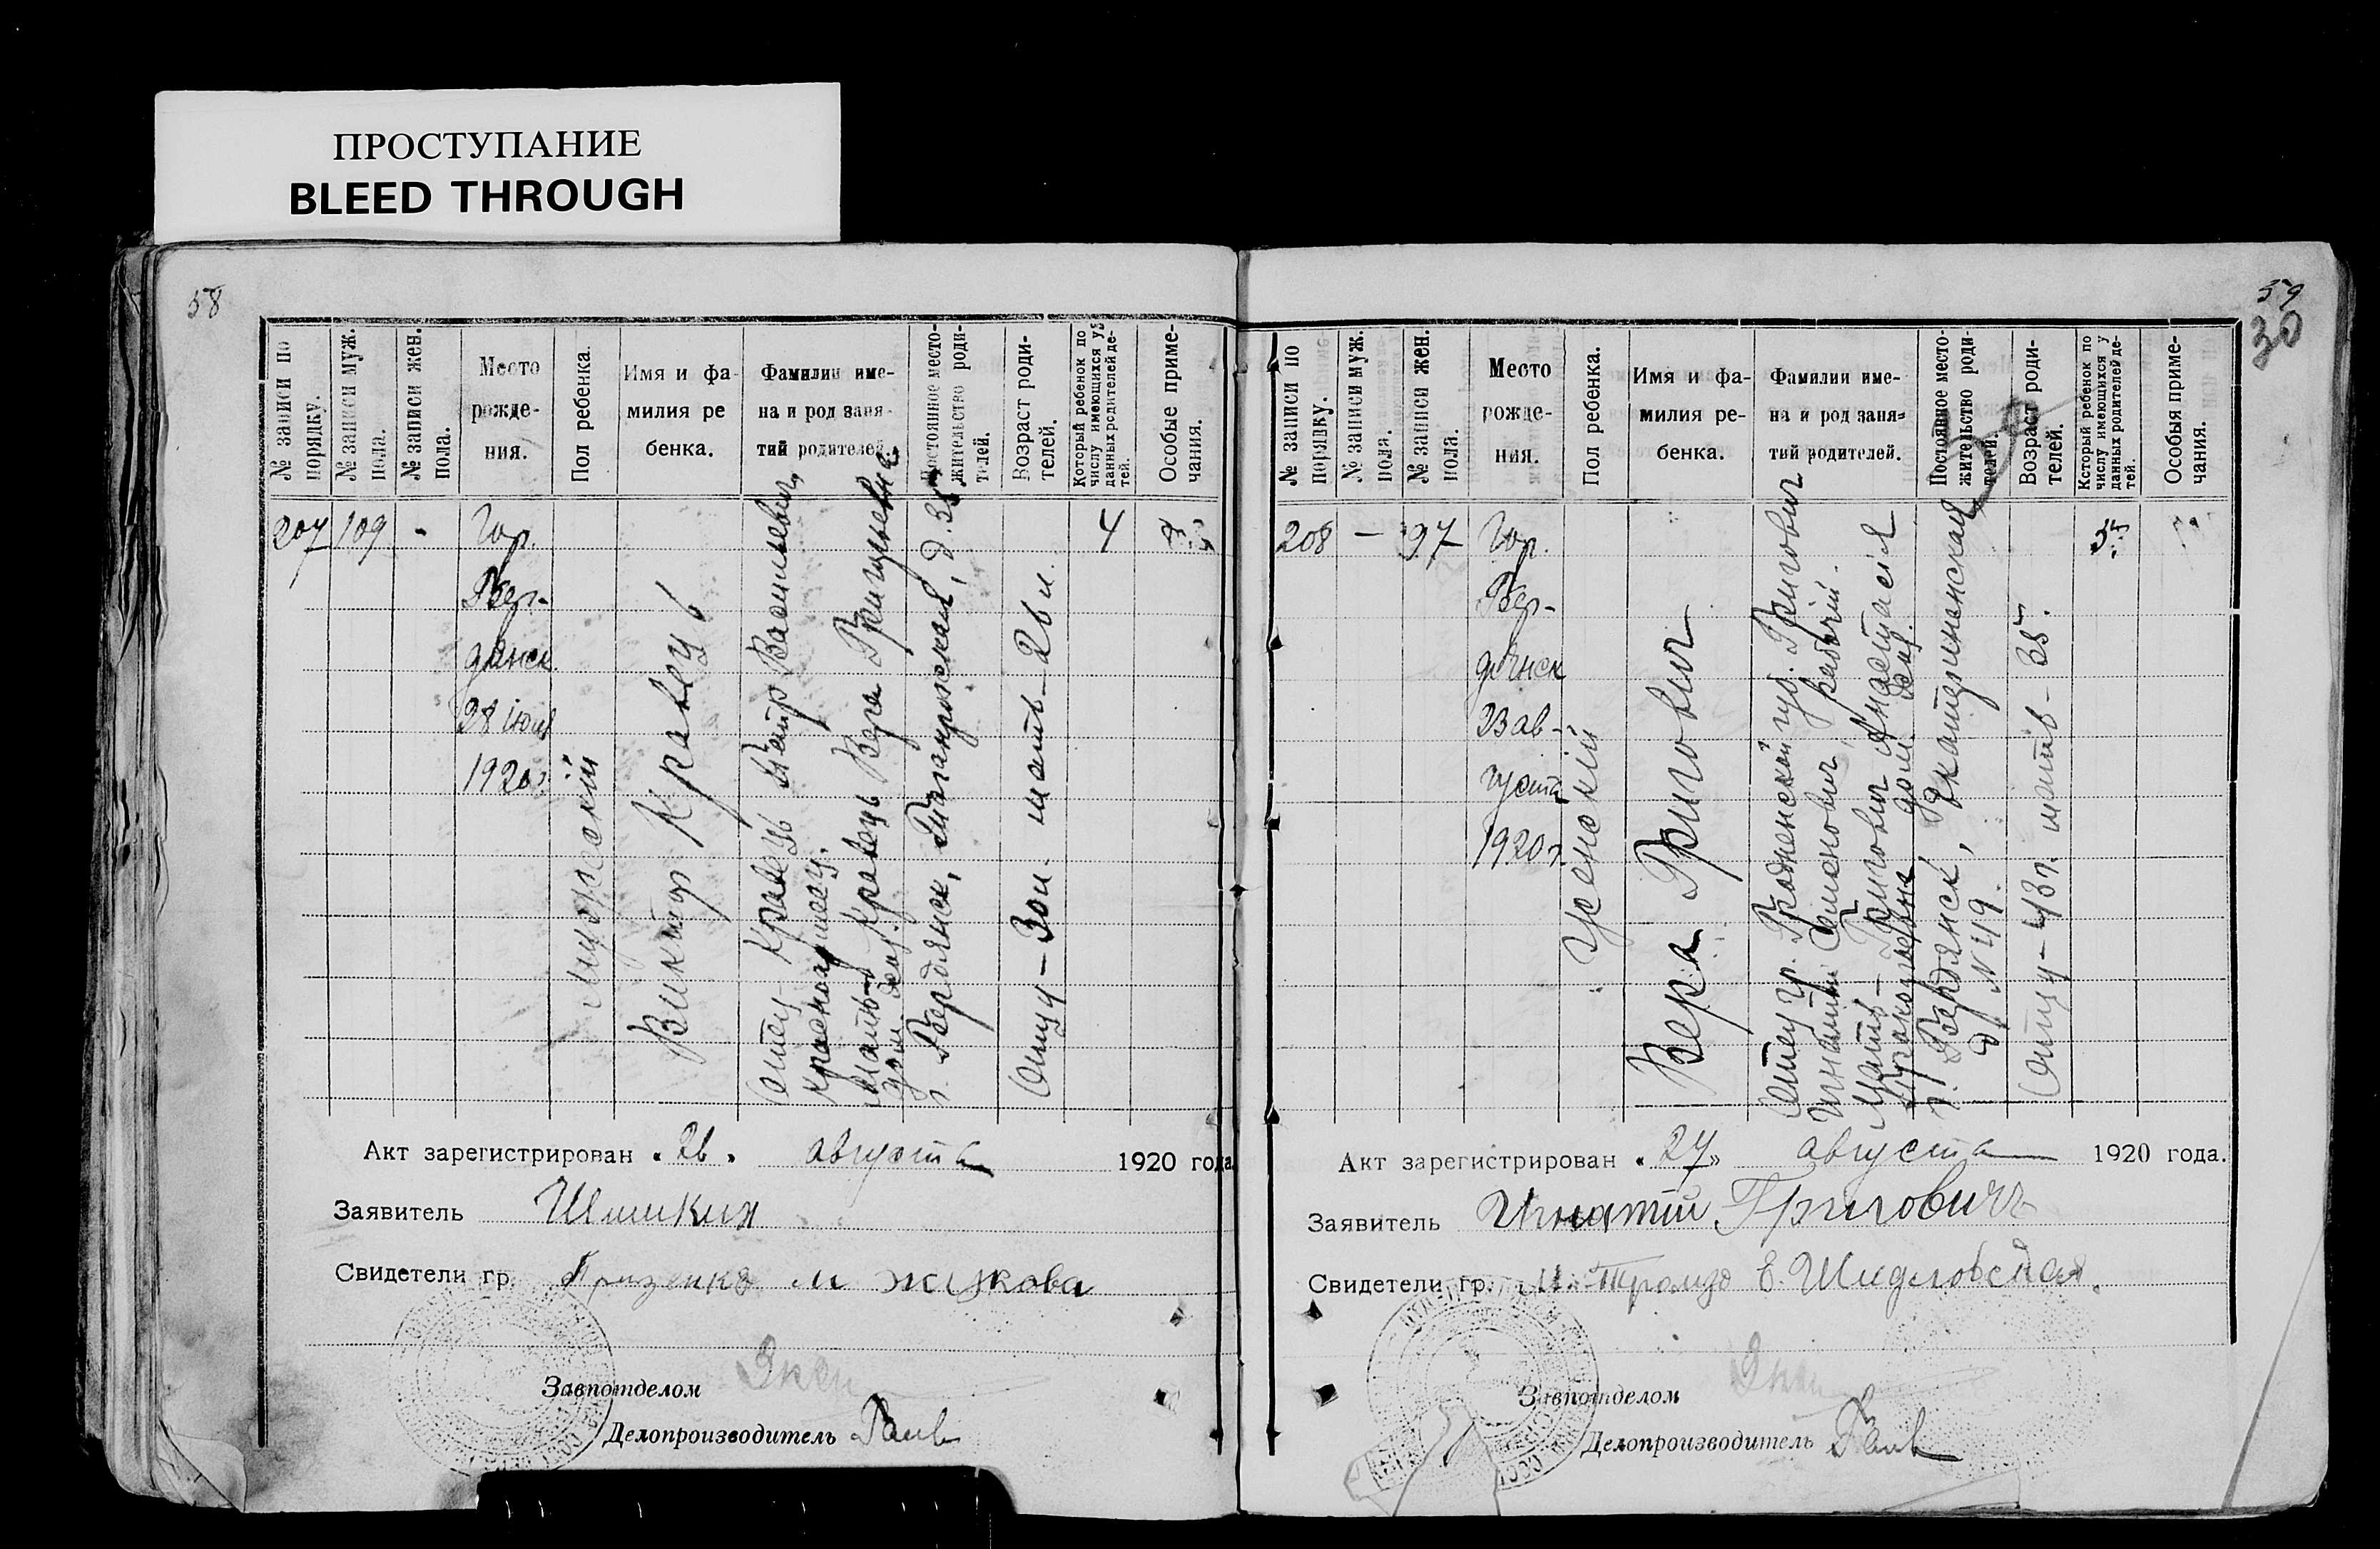 ПРОСТУПАНИЕ
BLEED THROUGH
58
№ записи по
порядку.
№ записи муж.
пола.
№ записи жен.
пола.
Место
рожде-
ния.
Пол ребенка.
Имя и фа-
милия ре
бенка.
Фамилии име-
на и род заня-
тий родителей.
Постоянное место-
жительство роди-
телей.
Возраст роди-
телей.
Который ребенок по
числу имеющихся у
данных родителей де-
тей.
Особые приме-
чания.
207
109
-
Гор.
Бер-
дянск
28 июля
1920г
мужский
Виктор Кравец
Отец Кравець Петр Васильевич,
красноармеец.
Мать Кравець Вера Григорьевна
дом. хоз.
г. Бердянск, Таганрожская, д. 35
Отцу - 30л. мать - 26 л.
4
Акт зарегистрирован „26„ августа 1920 года
Заявитель Шишкин
Свидетели гр. и жукова
Завпотделом
Делопроизводитель
59
30
№ записи по
порядку.
№ записи муж.
пола.
№ записи жен.
пола.
Место
рожде-
ния.
Пол ребенка.
Имя и фа-
милия ре-
бенка.
Фамилии име-
на и род заня-
тий родителей.
Постоянное место-
жительство роди-
телей.
Возраст роди-
телей.
Который ребенок по
числу имеющихся у
данных родителей де-
тей.
Особыя приме-
чания.
208
-
97
Гор.
Бер-
дянск
23 ав-
густа
1920г.
женский
Вера Григович
Отец гр. Гродненской губ. Григович
Игнатий Семенович, рабочий.
Мать - Григович Анастасия
дом. хоз.
г. Бердянск, Екатерининская
д. № 49.
Отцу - 43г. мать - 35.
3
Акт зарегистрирован „27„ августа 1920 года.
Заявитель Игнатий Григович
Свидетели гр. Е. Шидловская.
Завпотделом
Делопроизводитель